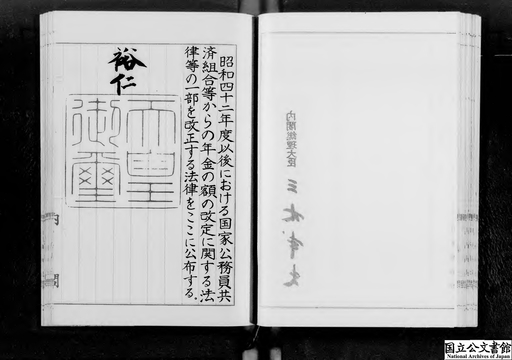 昭和四十二年度以後における国家公務員共
済組合等からの年金の額の改定に関する法
律等の一部を改正する法律をここに公布する。
裕仁
天皇
御璽
内閣
内閣総理大臣
三木武夫
国立公文書館
National Archives of Japan